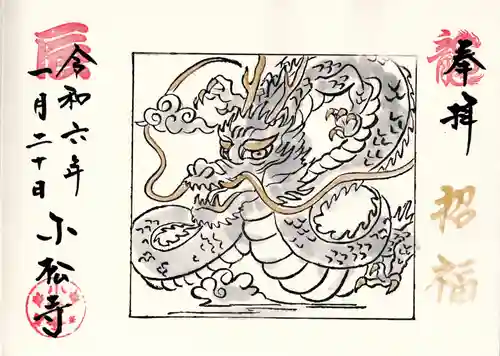 奉拝
龍
招福
辰
令和六年
一月二十日
小松寺